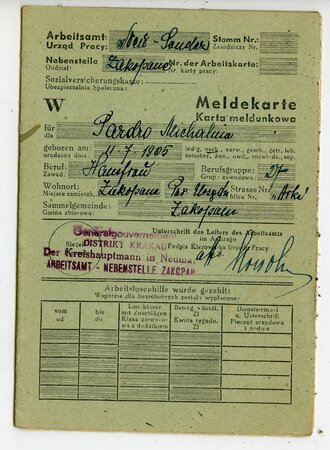 Arbeitsamt: Neu-Sandez Stamm Nr.:
Urząd Pracy: Zasadniczy Nr.
Nebenstelle Zakopane Nr. der Arbeitskarte:
Oddział: Nr. karty pracy:
Sozialversicherungskasse:
Ubezpieczalnia Społeczna:
W Meldekarte
Karta meldunkowa
für
dla Pardro Michalina
geboren am: 11.7.1905 led
urodzony dnia
Beruf: Hausfrau Berufsgruppe: 27
Zawód: Grup. zawodowa:
Wohnort: Zakopane Strasse Nr.
Miejsce zamieszk.: Ulica Nr.
Sammelgemeinde: Zakopane
Gmina zbiorowa:
Unterschrift des Leiters des Arbeitsamts
im Auftrage
Podpis Kierownika Urzędu Pracy
Generalgouvernement
DISTRIKT KRAKAU
Der Kreishauptmann in Neumarkt
ARBEITSAMT - NEBENSTELLE ZAKOPANE
Arbeitslosenhilfe wurde gezahlt:
Wsparcie dla bezrobotnych zostały wypłacone:
vom bis Lohnklasse Betrag wöchentl. Dienststempel
od do mit Zuschlägen Zl u. Unterschrift
Klasa zarobkowa Kwota tygodn. Pieczęć urzędowa
z dodatkiem Zl i podpis